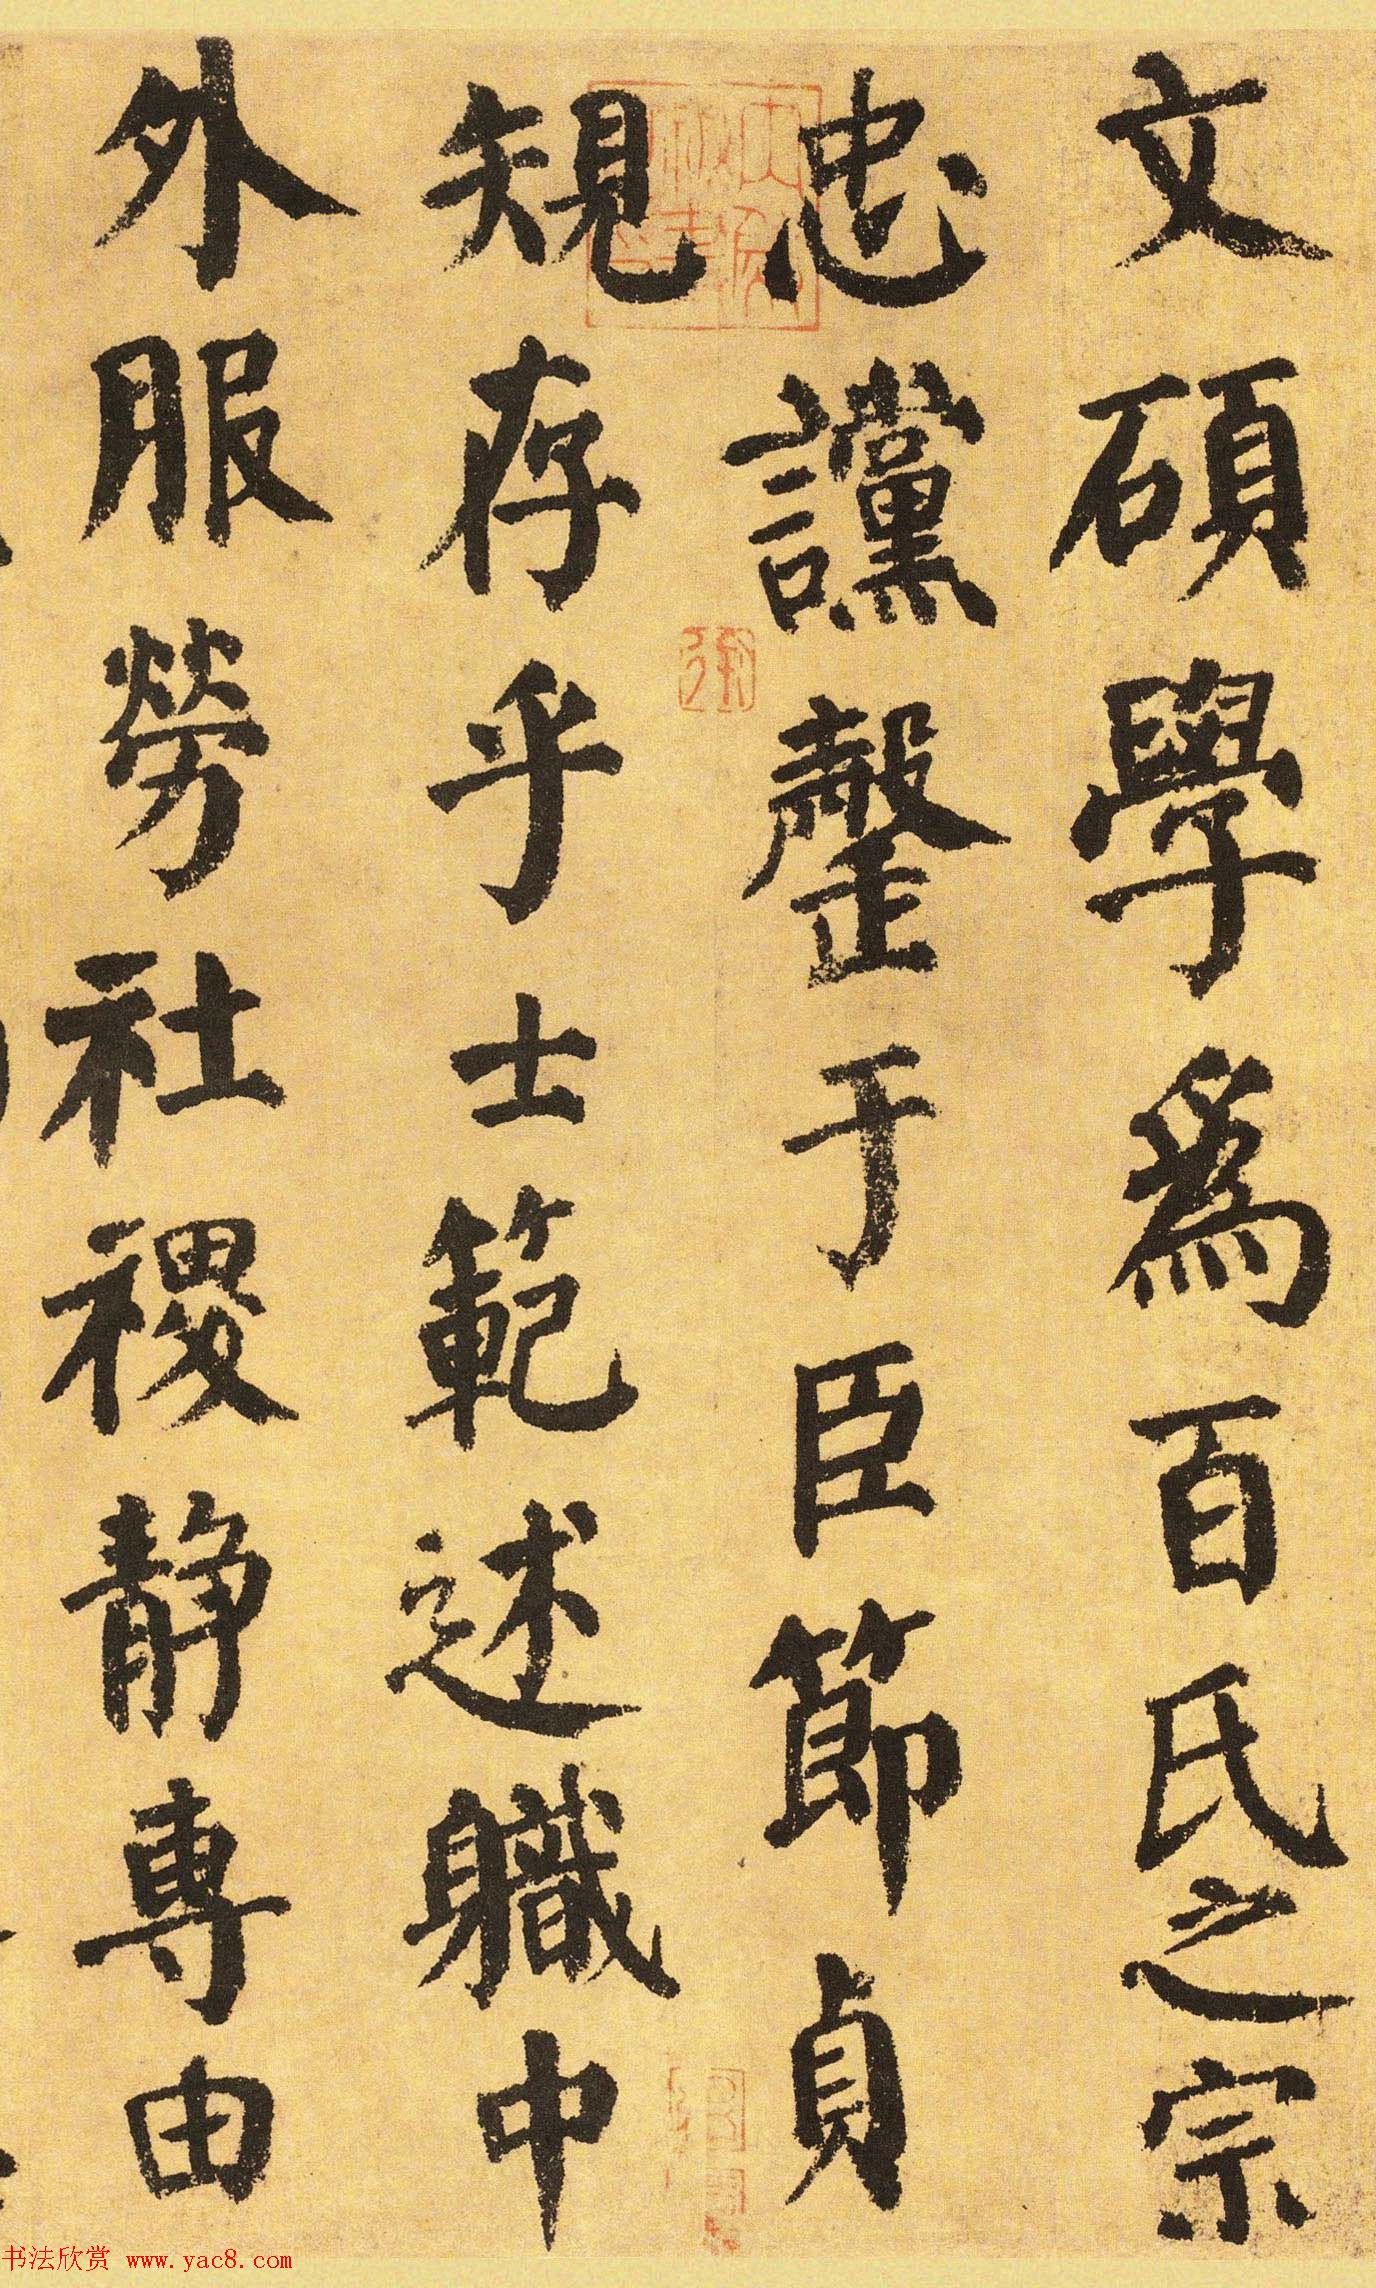 文碩學爲百氏之宗
忠讜罄于臣節貞
規存乎士範述職中
外服勞社稷靜專由
书法欣赏 www.yac8.com